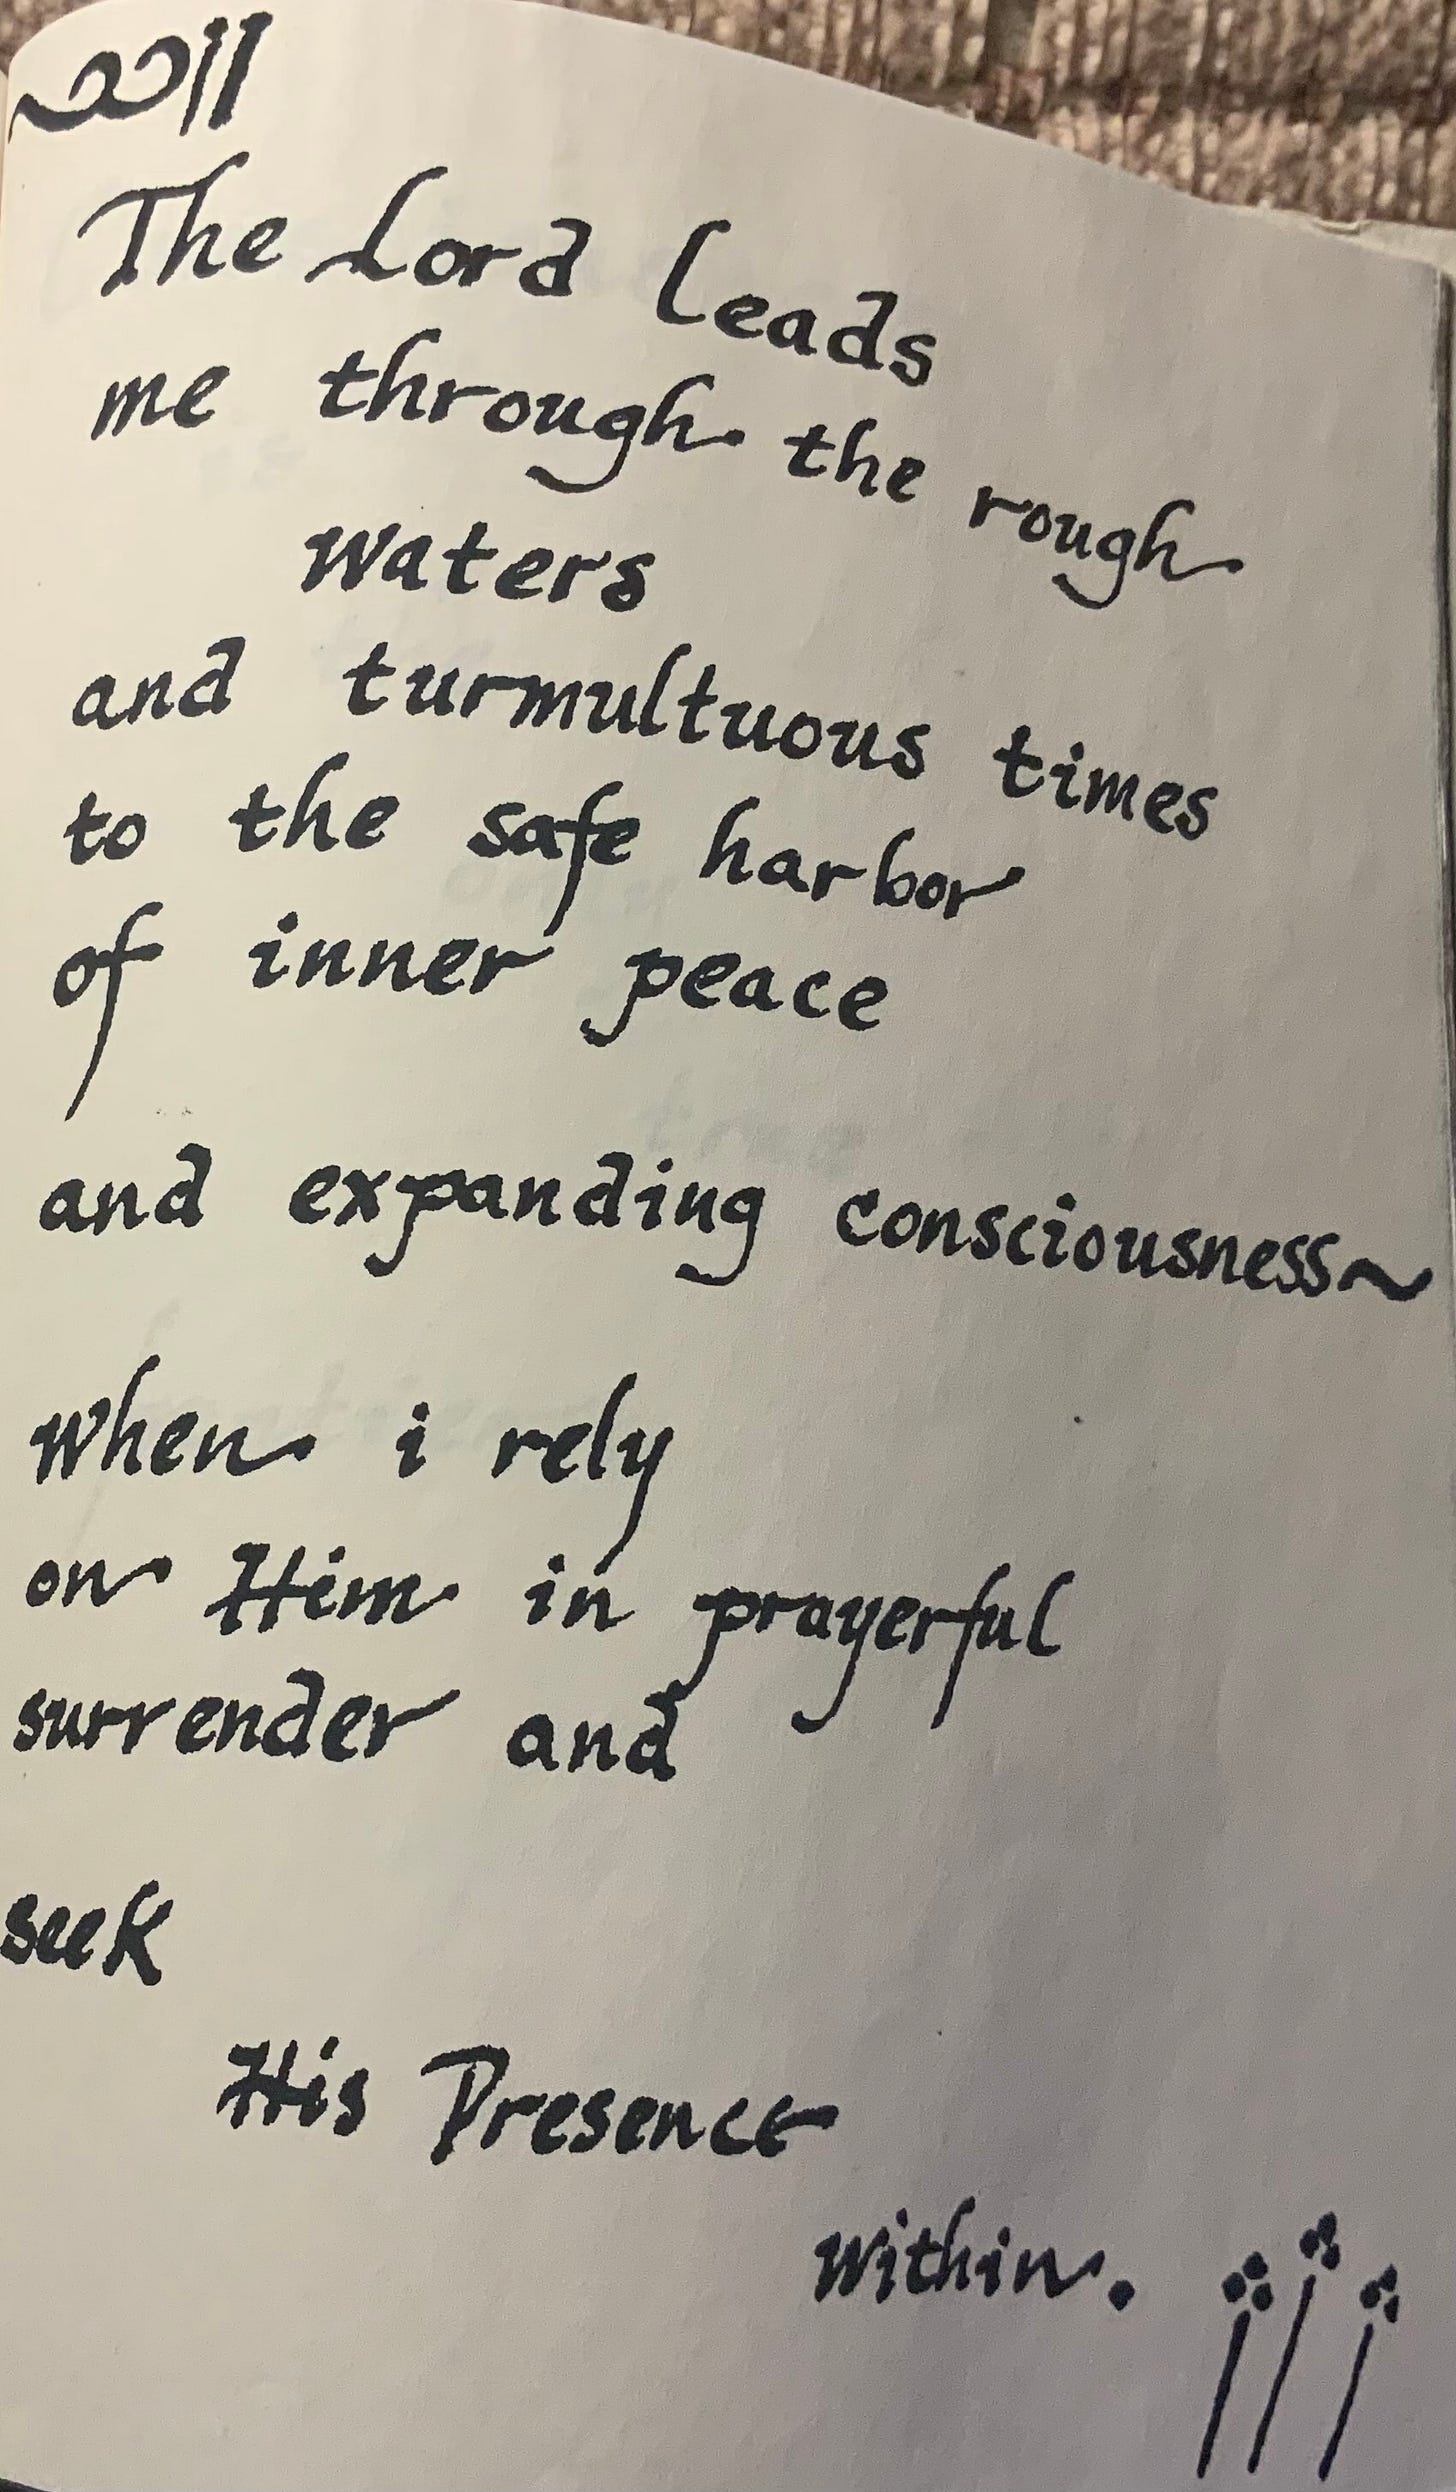 The Lord Leads
me through the rough
waters
and turmultuous times
to the safe harbor
of inner peace
and expanding consciousness~
when i rely
on Him in prayerful
surrender and
seek
His Presence
within.